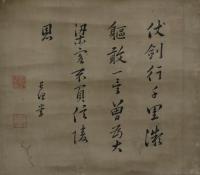 仗劍行千里微
軀敢一言曾為大
梁客不負信陵
恩